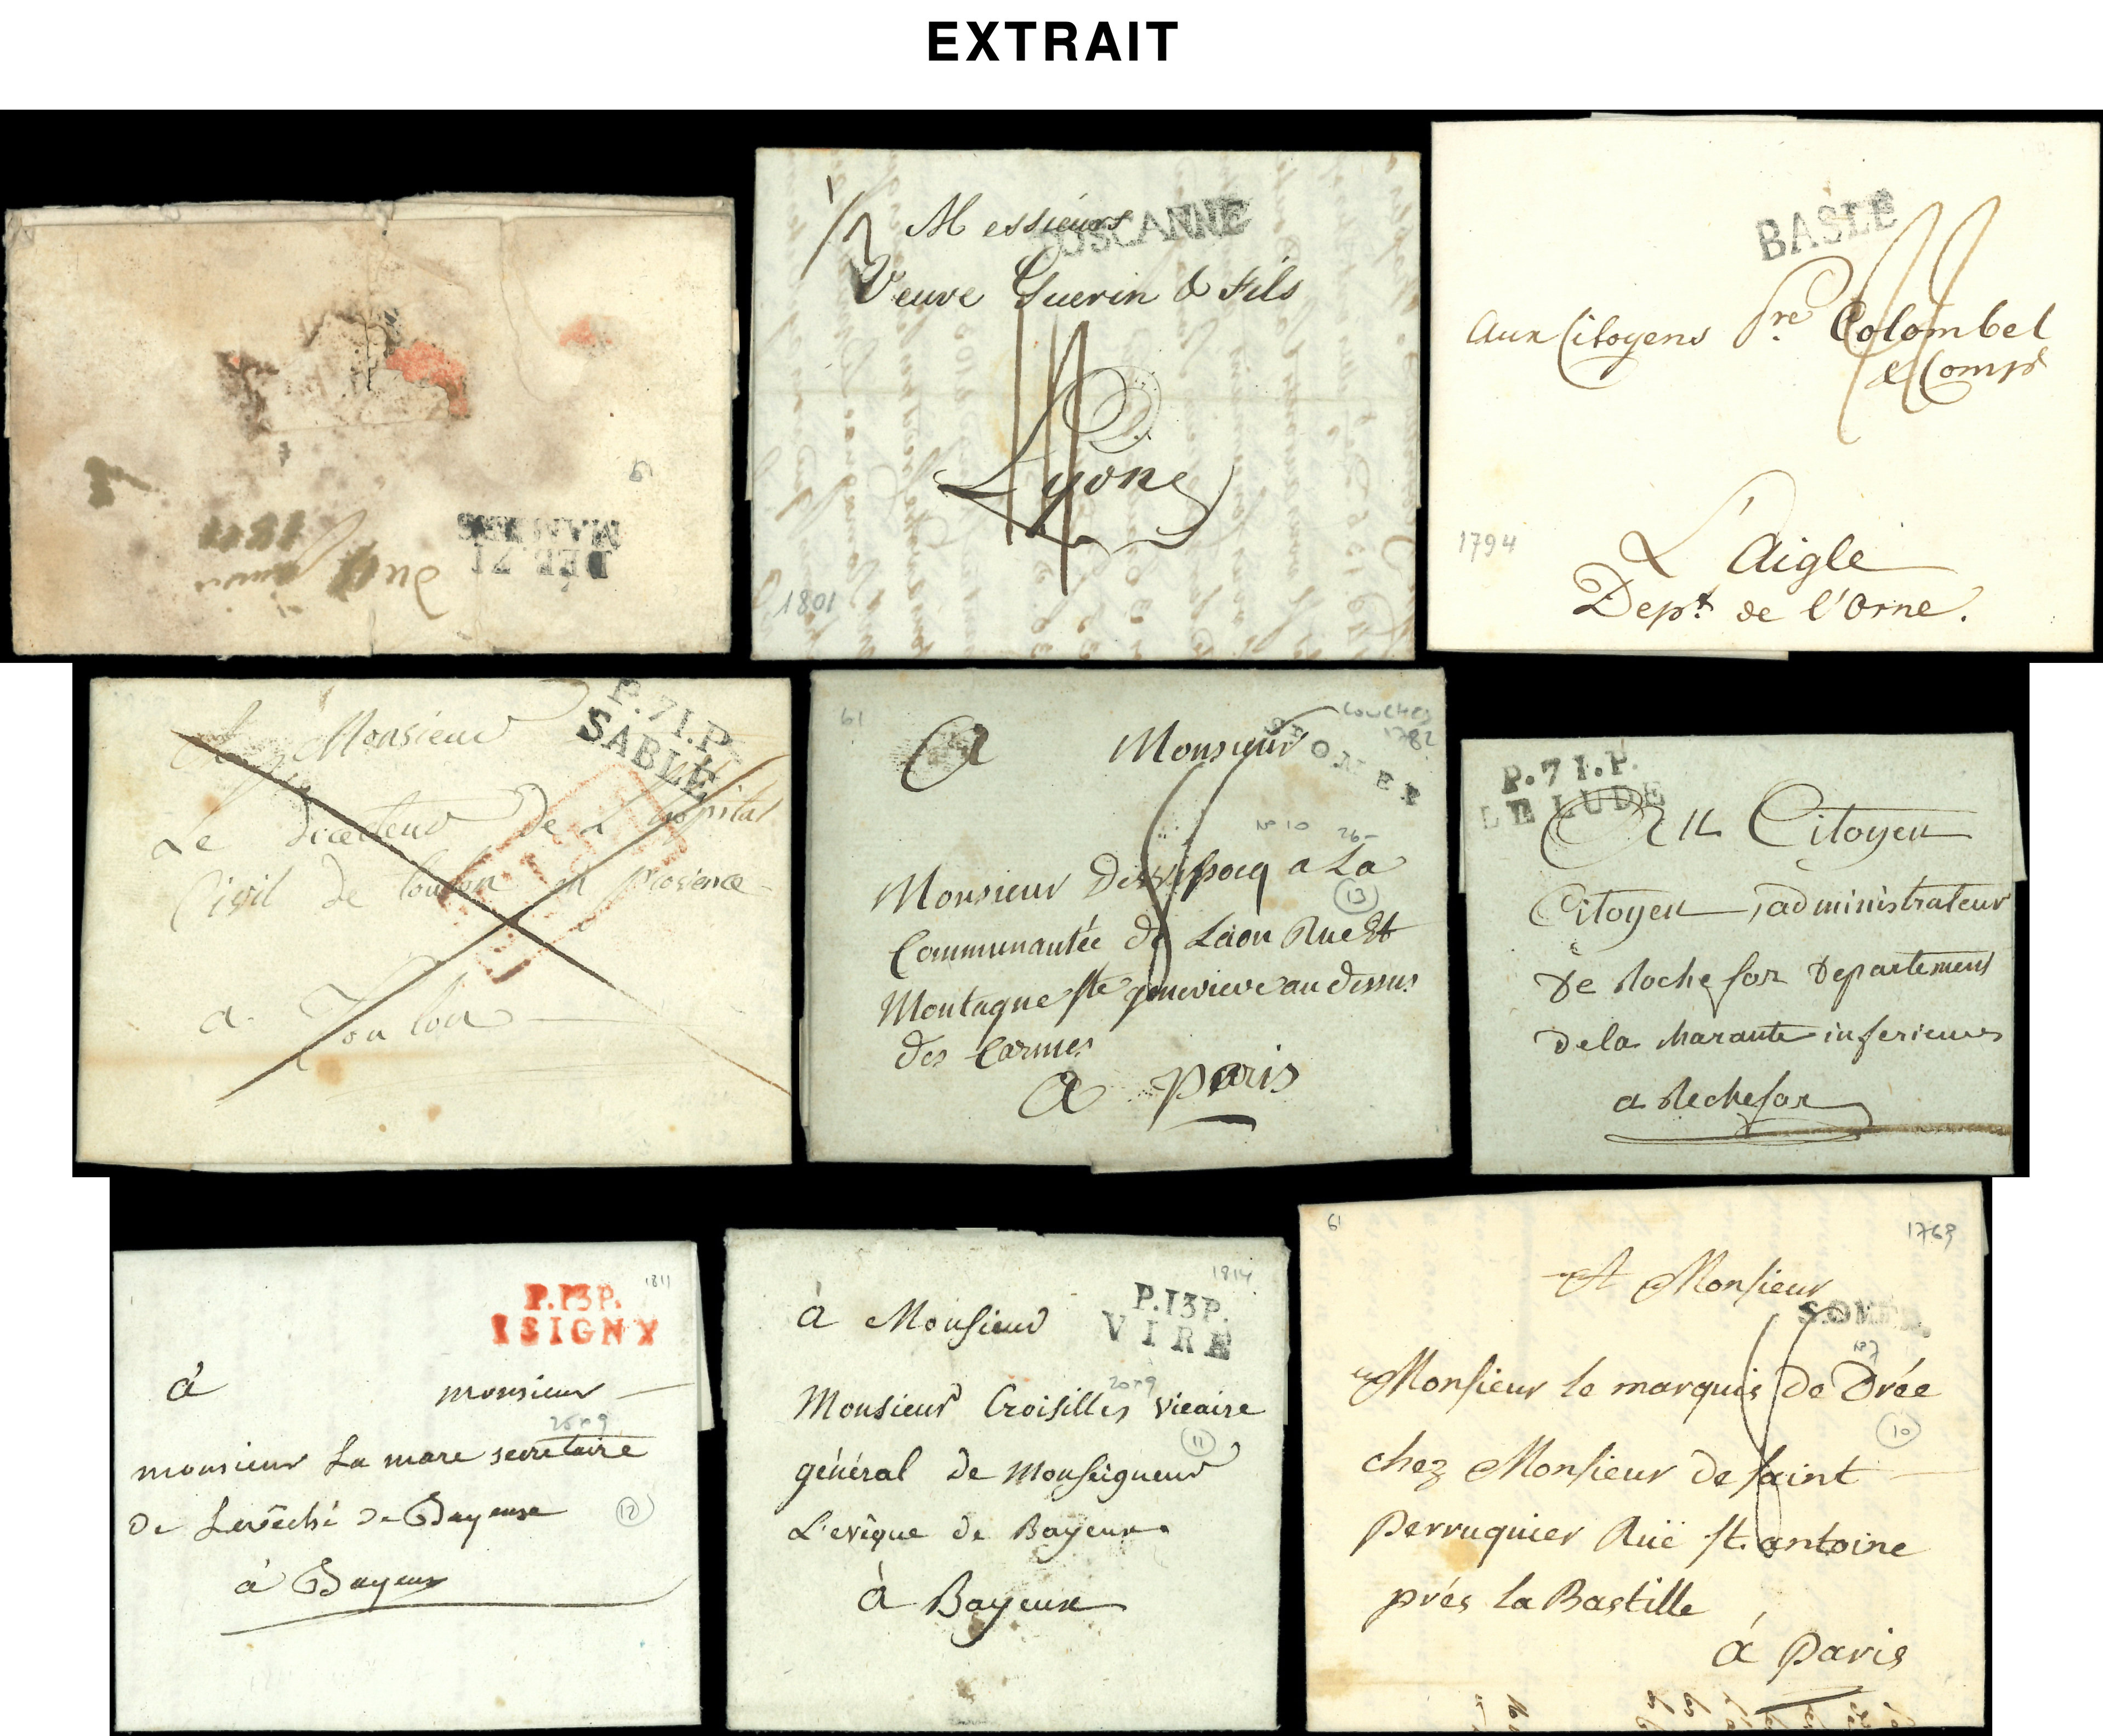 EXTRAIT
DÉB. 71
MAMERS
1/2
Messieurs
TOSCANNE
Veuve Guerin & Fils
Lyon
1801
BASLE
Aux Citoyens Pre Colombel
& Comp
1794
L'Aigle
Dept de l'Orne.
P.71.P.
SABLÉ
Monsieur
Le directeur De L hopital
Civil de toulon en provence
a Toulon
61
1782
ST OMER
A Monsieur
No 10 26-
Monsieur a La
13
Communautée de Laon Rue Et
Montagne ste genevieve au dessus
des Carmes
A paris
P.71.P.
LE LUDE
Au Citoyen
Citoyen administrateur
De Rochefor Departement
De la charante inferieures
a Rochefor
1811
P.13P.
ISIGNY
à monsieur
monsieur La mare secretaire
de Levêché de Bayeux
12
à Bayeux
1814
P.13P.
VIRE
à Monsieur
Monsieur Croisilles vicaire
11
général de Monseigneur
L'evêque de Bayeux.
à Bayeux
61
1769
A Monsieur
S.OMER.
Monsieur le marquis de Drée
10
chez Monsieur de saint
perruquier Rüe st. antoine
prés la Bastille
á paris